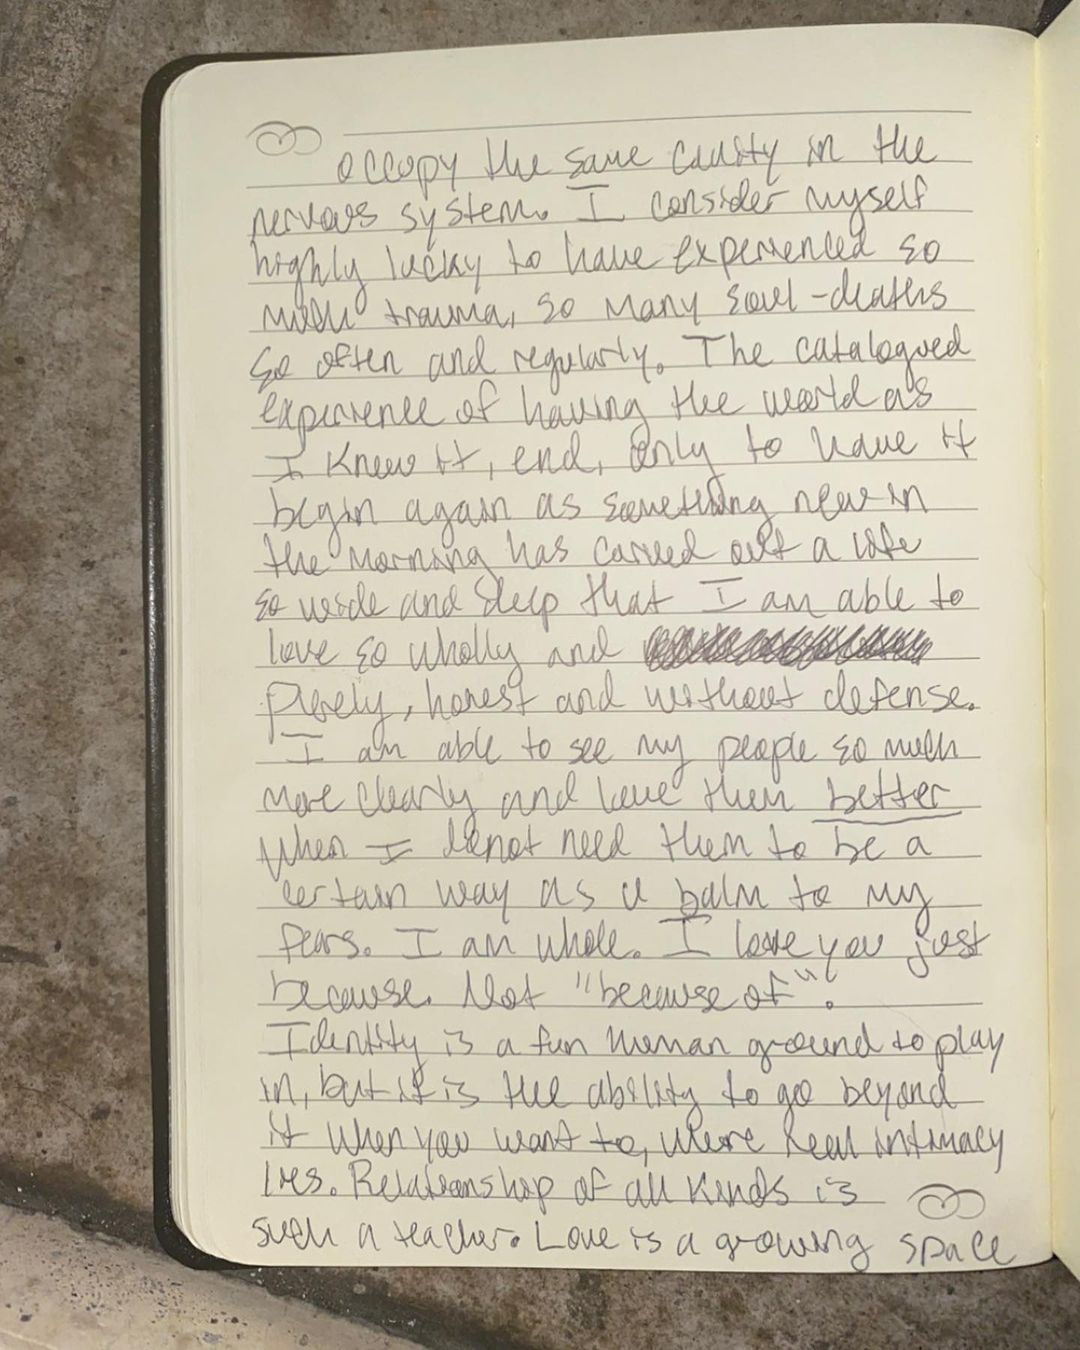 occupy the same cavity in the
nervous system. I consider myself
highly lucky to have experienced so
much trauma, so many soul-deaths
so often and regularly. The catalogued
experience of having the world as
I knew it, end, only to have it
begin again as something new in
the morning has carved out a life
so wide and deep that I am able to
love so wholly and
purely, honest and without defense.
I am able to see my people so much
more clearly and love them better
when I do not need them to be a
certain way as a balm to my
fears. I am whole. I love you just
because. Not "because of".
Identity is a fun human ground to play
in, but it is the ability to go beyond
it when you want to, where real intimacy
lies. Relationship of all kinds is
such a teacher. Love is a growing space